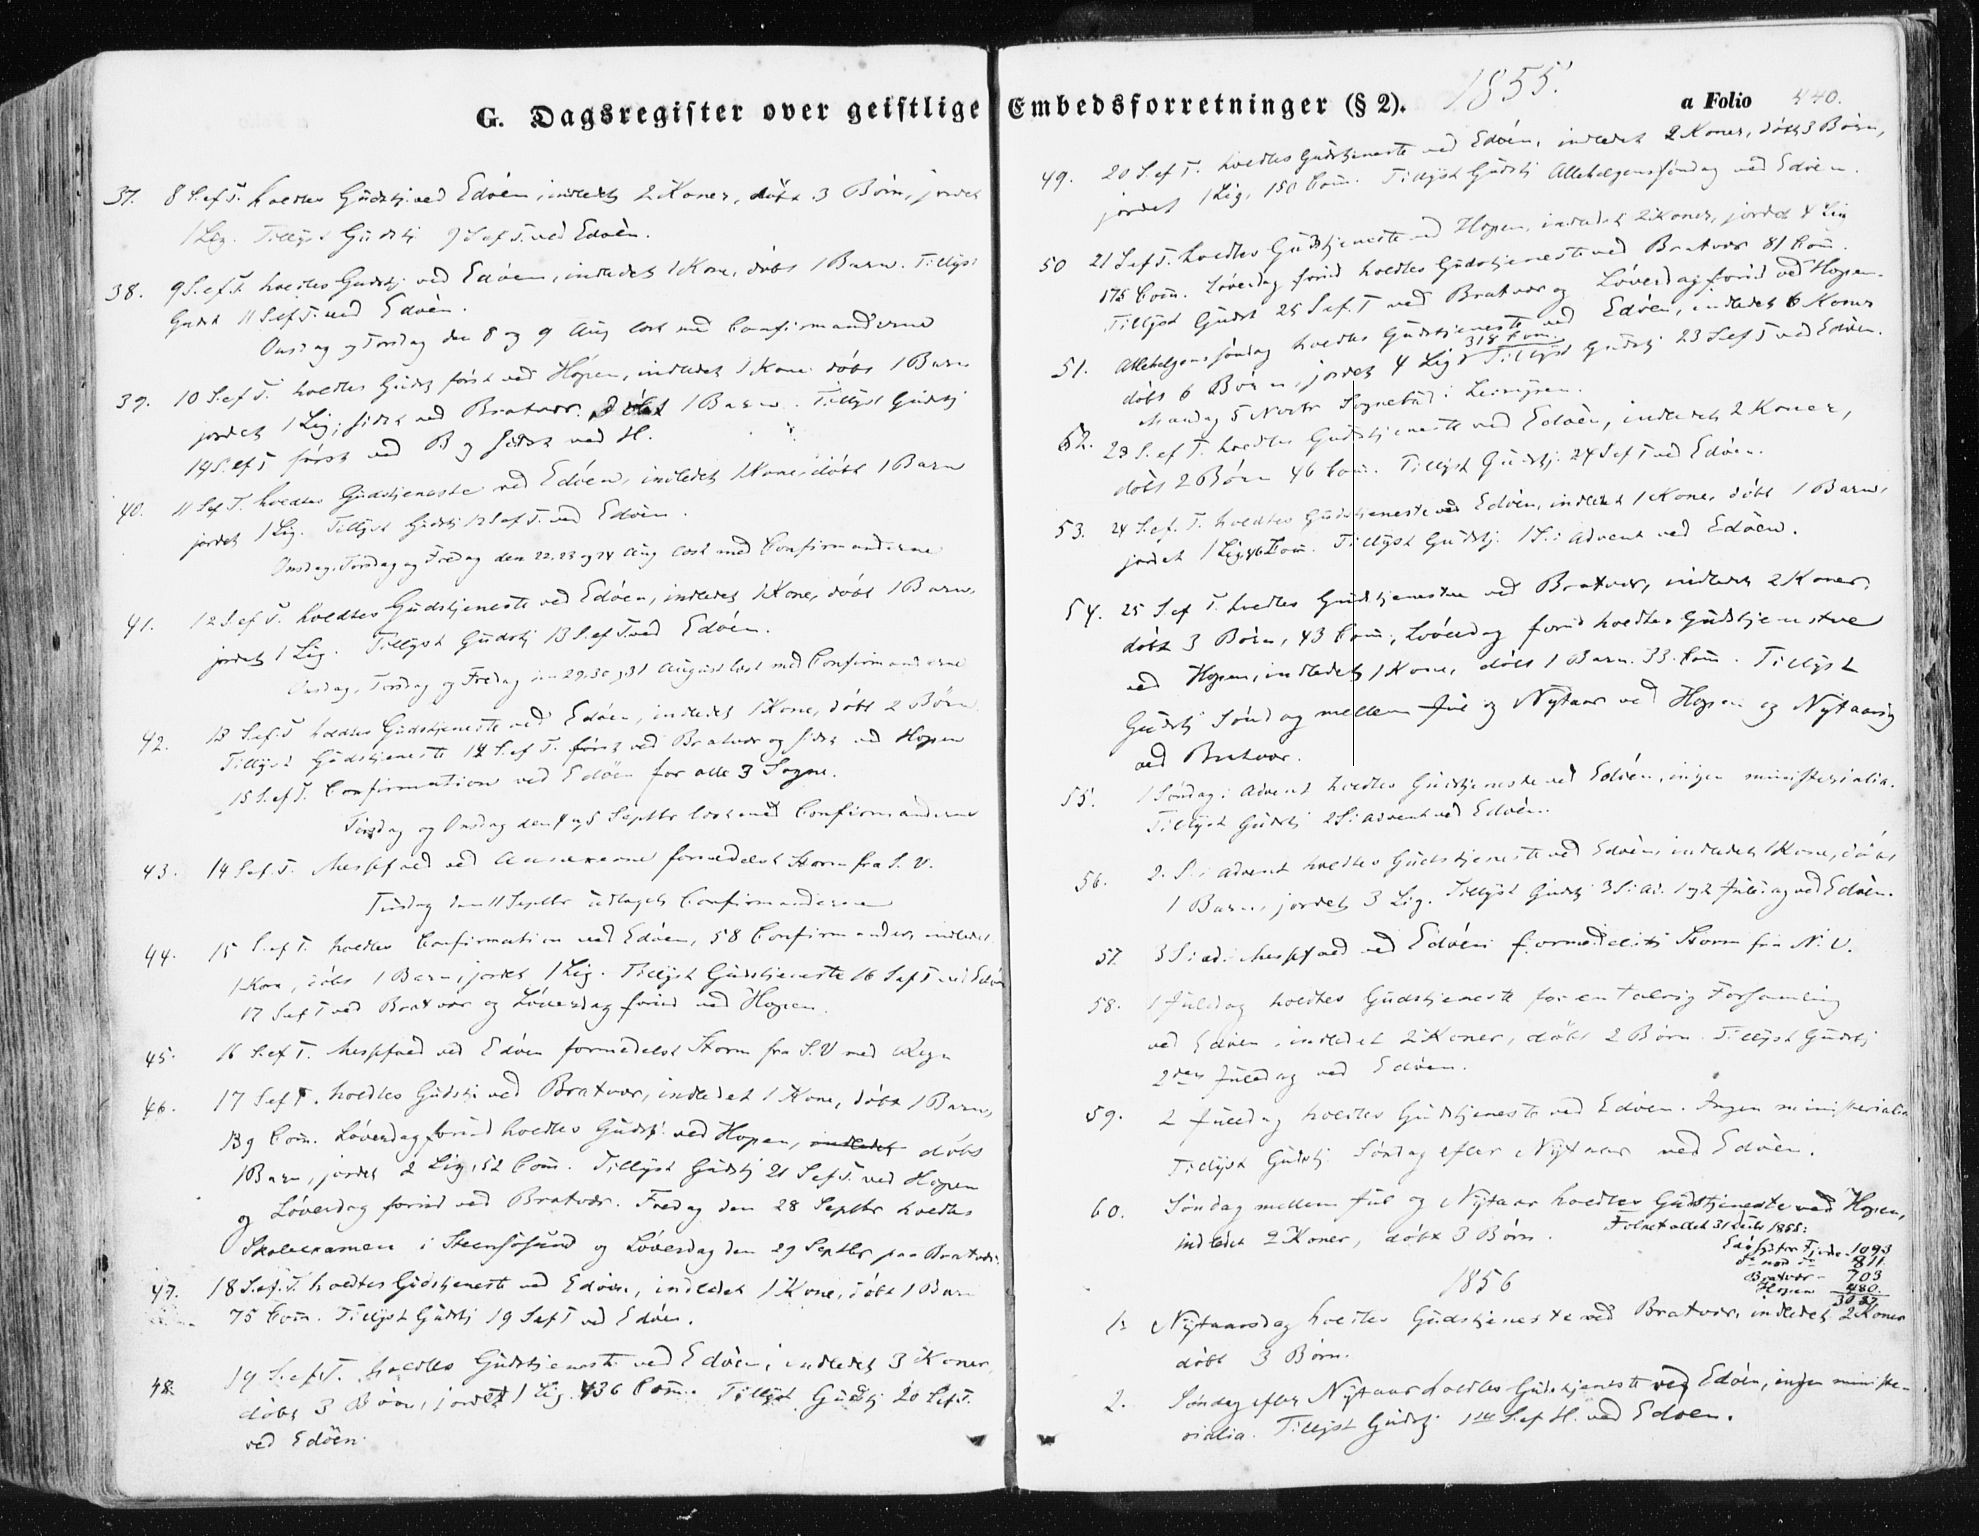 G. Dagsregister over geistlige Embedsforretninger (§ 2). 1855. a Folio 440.
37. 8 S. ef T. holdtes Gudstj ved Edöen, indledet 2 Koner, döbt 3 Börn, jordet
1 Lig. Tillyst Gudstj 9 S ef T. ved Edöen.
38. 9 S. ef T. holdtes Gudstj ved Edöen, indledet 1 Kone, döbt 1 Barn. Tillyst
Gudst 11 S ef T. ved Edöen.
Onsdag og Torsdag den 8 og 9 Aug læst med Confirmanderne
39. 10 S. ef T. holdtes Gudstj först ved Hopen, indledet 1 Kone döbt 1 Barn
jordet 1 Lig; sidst ved Bratvær. döbt 1 Barn. Tillyst Gudstj
14 S. ef T först ved B og sidst ved H.
40. 11 S ef T. holdtes Gudstjeneste ved Edöen, indledet 1 Kone, döbt 1 Barn
jordet 1 Lig. Tillyst Gudstj 12 S ef T. ved Edöen.
Onsdag, Torsdag og Fredag den 22. 23 og 24 Aug læst med Confirmanderne
41. 12 S. ef T. holdtes Gudstjeneste ved Edöen, indledet 1 Kone, döbt 1 Barn,
jordet 1 Lig. Tillyst Gudstj 13 S. ef T. ved Edöen.
Onsdag, Torsdag og Fredag den 29. 30 og 31 August læst med Confirmanderne
42. 13 S. ef T holdtes Gudstjeneste ved Edöen, indledet 1 Kone, döbt 2 Börn.
Tillyst Gudstjeneste 14 S. ef T. först ved Bratvær og sidst ved Hopen
15 S. ef T. Confirmation ved Edöen for alle 3 Sogne.
Tirsdag og Onsdag den 4 og 5 Septbr læst med Confirmanderne
43. 14 S. ef. T. Messefald ved Annexerne formedelst Storm fra S. V.
Tirsdag den 11 Septbr udtaget Confirmanderne
44. 15 S. ef T. holdtes Confirmation ved Edöen, 58 Confirmander, indledet
1 Kone, döbt 1 Barn, jordet 1 Lig. Tillyst Gudstjeneste 16 S ef T ved Edöen
17 S ef T ved Bratvær og Löverdag forud ved Hopen.
45. 16 S. ef T. Messefald ved Edöen formedelst Storm fra S. V med Regn
46. 17 S ef T. holdtes Gudstj ved Bratvær, indledet 1 Kone, döbt 1 Barn,
139 Com. Löverdag forud holdtes Gudstj ved Hopen, indledet döbt
1 Barn, jordet 2 Lig, 52 Com. Tillyst Gudstj 21 S ef T. ved Hopen
og Löverdag forud ved Bratvær. Fredag den 28 Septbr holdtes
Skoleexamen i Steensösund og Löverdag den 29 Septbr paa Bratvær.
47. 18 S. ef. T. holdtes Gudstjeneste ved Edöen, indledet 1 Kone, döbt 1 Barn
75 Com. Tillyst Gudstj 19 S ef T ved Edöen.
48. 19 S. ef. T. holdtes Gudstjeneste ved Edöen, indledet 3 Koner,
döbt 3 Börn, jordet 1 Lig. 136 Com. Tillyst Gudstj 20 S ef T.
ved Edöen.
49. 20 S. ef T. holdtes Gudstjeneste ved Edöen, indledet 2 Koner, döbt 3 Börn,
jordet 1 Lig, 150 Com. Tillyst Gudstj Allehelgenssöndag ved Edöen.
50 21 S. ef T. holdtes Gudstjeneste ved Hopen, indledet 2 Koner, jordet 4 Lig
175 Com. Löverdag forud holdtes Gudstjeneste ved Bratvær 81 Com.
Tillyst Gudst 25 S ef. T ved Bratvær og Löverdag forud ved Hopen.
51. Allehelgenssöndag holdtes Gudstjeneste ved Edöen, indledet 6 Koner
döbt 6 Börn, jordet 4 Lig 318 Com. Tillyst Gudstj 23 S ef T ved Edöen.
Mandag 5 Novbr Sognebud i
52. 23 S. ef T. holdtes Gudstjeneste ved Edöen, indledet 2 Koner,
döbt 2 Börn 46 Com. Tillyst Gudstj. 24 S ef T ved Edöen.
53. 24 S. ef. T. holdtes Gudstjeneste ved Edöen, indledet 1 Kone, döbt 1 Barn,
jordet 1 Lig, 46 Com. Tillyst Gudstj. 1 S. i Advent ved Edöen.
54. 25 S. ef T. holdtes Gudstjeneste ved Bratvær, indledet 2 Koner,
döbt 3 Börn, 43 Com., Löverdag forud holdtes Gudstjeneste
ved Hopen, indledet 1 Kone, döbt 1 Barn. 33. Com. Tillyst
Gudstj Söndag mellem Jul og Nytaar ved Hopen og Nytaarsdg
ved Bratvær.
55. 1 Söndag i Advent holdtes Gudstjeneste ved Edöen, ingen ministerialia.
Tillyst Gudstj 2 S: i Advent ved Edöen.
56. 2. S. i Advent holdtes Gudstjeneste ved Edöen, indledet 1 Kone, döbt
1 Barn, jordet 3 Lig. Tillyst Gudstj 3 S: i Ad. 1 og 2 Juledag ved Edöen.
57. 3 S: i ad. Messefald ved Edöen formedelst Storm fra N. V.
58. 1 Juledag holdtes Gudstjeneste for en talrig Forsamling
ved Edöen, indledet 2 Koner, döbt 2 Börn. Tillyst Gudstj
2den Juledag ved Edöen.
59. 2 Juledag holdtes Gudstjeneste ved Edöen. Ingen ministerialia
Tillyst Gudstj Söndag efter Nytaar ved Edöen.
60. Söndag mellem Jul og Nytaar holdtes Gudstjeneste ved Hopen,
indledet 2 Koner, döbt 3 Börn.
Folketallet 31 Decbr 1855:
1093
811
Bratvær – 703
Hopen 480.
3087
1856
1. Nytaarsdag holdtes Gudstjeneste ved Bratvær, indledet 2 Koner
döbt 3 Börn.
2. Söndag efter Nytaar holdtes Gudstjeneste ved Edöen, ingen ministe-
rialia. Tillyst Gudstj 1ste S. ef H. ved Edöen.